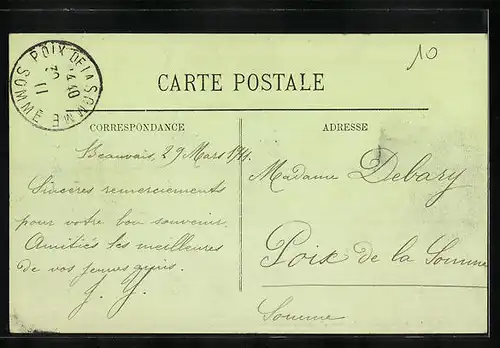 10
POIX DE LA SOMME
14 40
SOMME
CARTE POSTALE
CORRESPONDANCE
ADRESSE
Beauvais, 29 Mars 1911.
Sincères remerciements
pour votre bon souvenir.
Amitiés les meilleures
de vos jeunes amis.
Madame Debary
Poix de la Somme
Somme